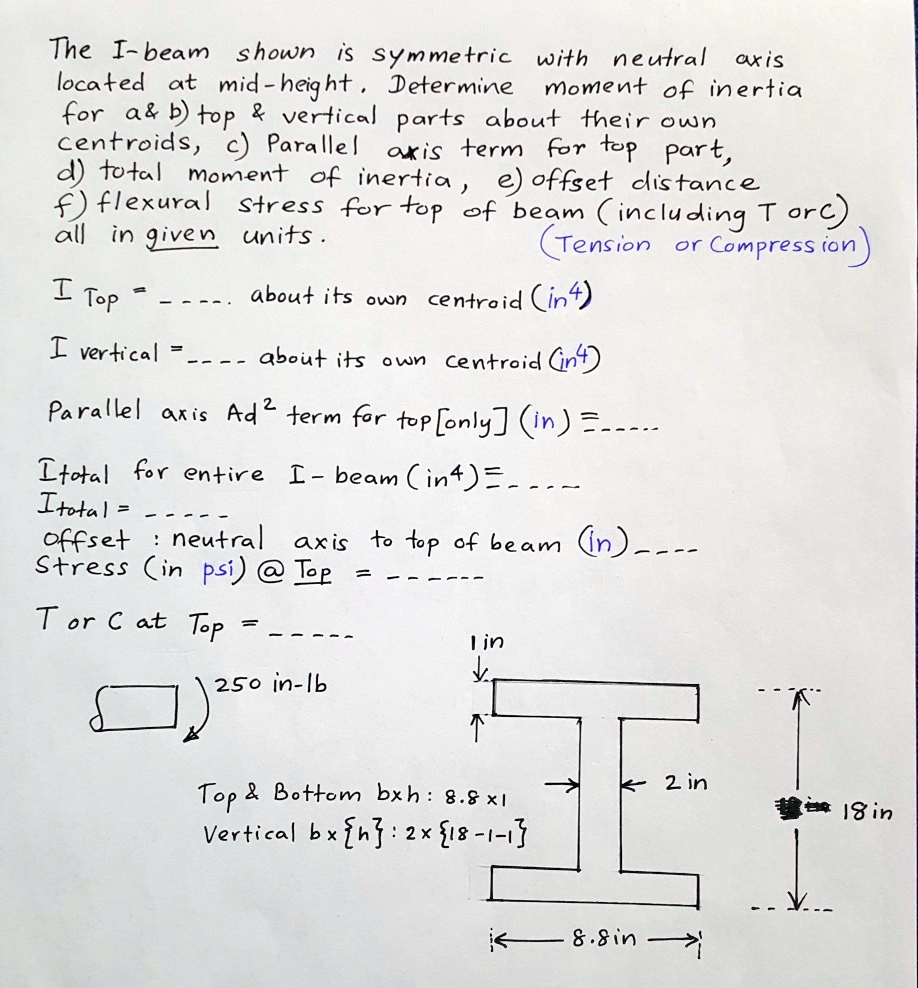 The I-beam shown is symmetric with neutral axis
located at mid-height. Determine moment of inertia
for a& b) top & vertical parts about their own
centroids, c) Parallel axis term for top part,
d) total moment of inertia, e) offset distance
f) flexural stress for top of beam (including T orC)
all in given units.
(Tension or Compression)
I Top = ----. about its own centroid (in⁴)
I vertical = ---- about its own centroid (in⁴)
Parallel axis Ad² term for top [only] (in) = -----
Itotal for entire I-beam (in⁴) = ----
Itotal = -----
offset : neutral axis to top of beam (in) ----
Stress (in psi) @ Top = ------
T or C at Top = -----
1 in
250 in-lb
2 in
Top & Bottom bxh: 8.8 x1
18 in
Vertical b x {h} : 2 x {18-1-1}
8.8 in